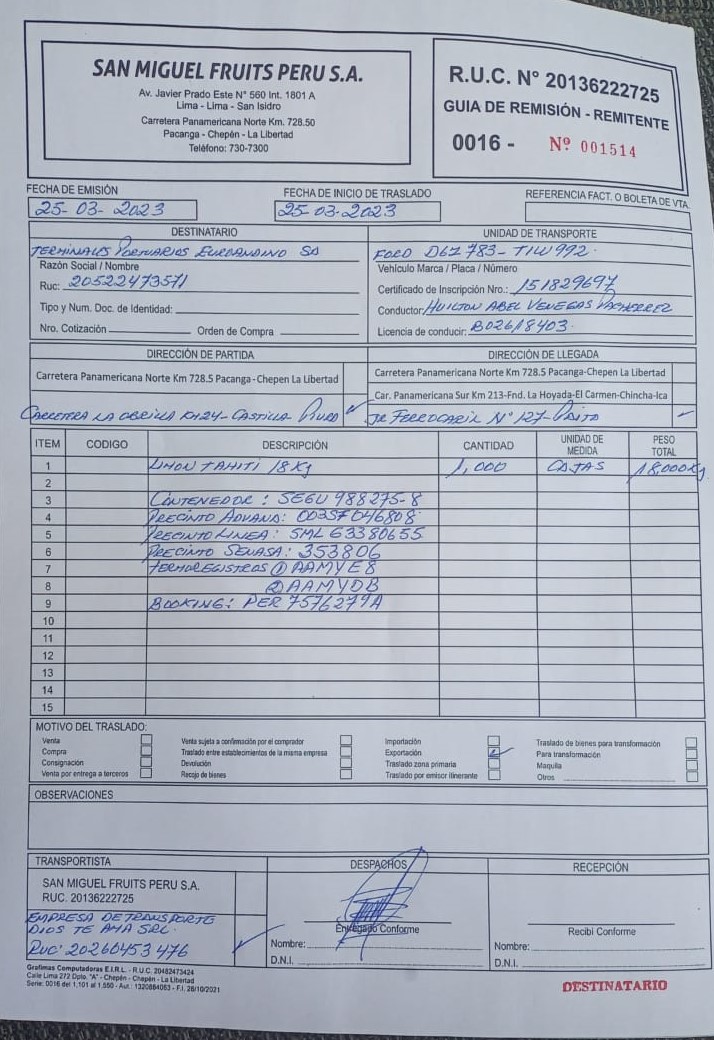 SAN MIGUEL FRUITS PERU S.A.
Av. Javier Prado Este N° 560 Int. 1801 A
Lima - Lima - San Isidro
Carretera Panamericana Norte Km. 728.50
Pacanga - Chepén - La Libertad
Teléfono: 730-7300
R.U.C. N° 20136222725
GUIA DE REMISIÓN - REMITENTE
0016 - Nº 001514
FECHA DE EMISIÓN
25-03-2023
FECHA DE INICIO DE TRASLADO
25-03-2023
REFERENCIA FACT. O BOLETA DE VTA.
DESTINATARIO
TERMINALES PORTUARIOS EUROANDINO SA
Razón Social / Nombre
Ruc: 20522473571
Tipo y Num. Doc. de Identidad:
Nro. Cotización Orden de Compra
UNIDAD DE TRANSPORTE
FORD D6Z 783 - T1W 992
Vehículo Marca / Placa / Número
Certificado de Inscripción Nro.: 151829697
Conductor: HUILTON ABEL VENEGAS
Licencia de conducir: B02618403
DIRECCIÓN DE PARTIDA
Carretera Panamericana Norte Km 728.5 Pacanga-Chepen La Libertad
CARRETERA LA OBRILLA KM24 - CASTILLA PIURA
DIRECCIÓN DE LLEGADA
Carretera Panamericana Norte Km 728.5 Pacanga-Chepen La Libertad
Car. Panamericana Sur Km 213-Fnd. La Hoyada-El Carmen-Chincha-Ica
JR FERROCARIL N° 127 - PAITA
ITEM CODIGO DESCRIPCIÓN CANTIDAD UNIDAD DE MEDIDA PESO TOTAL
1 LIMON TAHITI 18 Kg 1,000 CAJAS 18,000Kg
2
3 CONTENEDOR: SEGU 988275-8
4 PRECINTO ADUANA: 003SF046808
5 PRECINTO LINEA: SML 63380655
6 PRECINTO SENASA: 353806
7 TERMOREGISTROS ① AAMYE8
8 ② AAMYDB
9 BOOKING: PER 7576279A
10
11
12
13
14
15
MOTIVO DEL TRASLADO:
Venta
Compra
Consignación
Venta por entrega a terceros
Venta sujeta a confirmación por el comprador
Traslado entre establecimientos de la misma empresa
Devolución
Recojo de bienes
Importación
Exportación
Traslado zona primaria
Traslado por emisor itinerante
Traslado de bienes para transformación
Para transformación
Maquila
Otros
OBSERVACIONES
TRANSPORTISTA
SAN MIGUEL FRUITS PERU S.A.
RUC. 20136222725
EMPRESA DE TRANSPORTE
DIOS TE AMA SRL.
RUC: 20260453476
DESPACHOS
Entregado Conforme
Nombre:
D.N.I.
RECEPCIÓN
Recibi Conforme
Nombre:
D.N.I.
Grafimas Computadoras E.I.R.L. - R.U.C. 20482473424
Calle Lima 272 Dpto. "A" - Chepén - Chepén - La Libertad
Serie: 0016 del 1,101 al 1,550 - Aut.: 1320884063 - F.I. 28/10/2021
DESTINATARIO